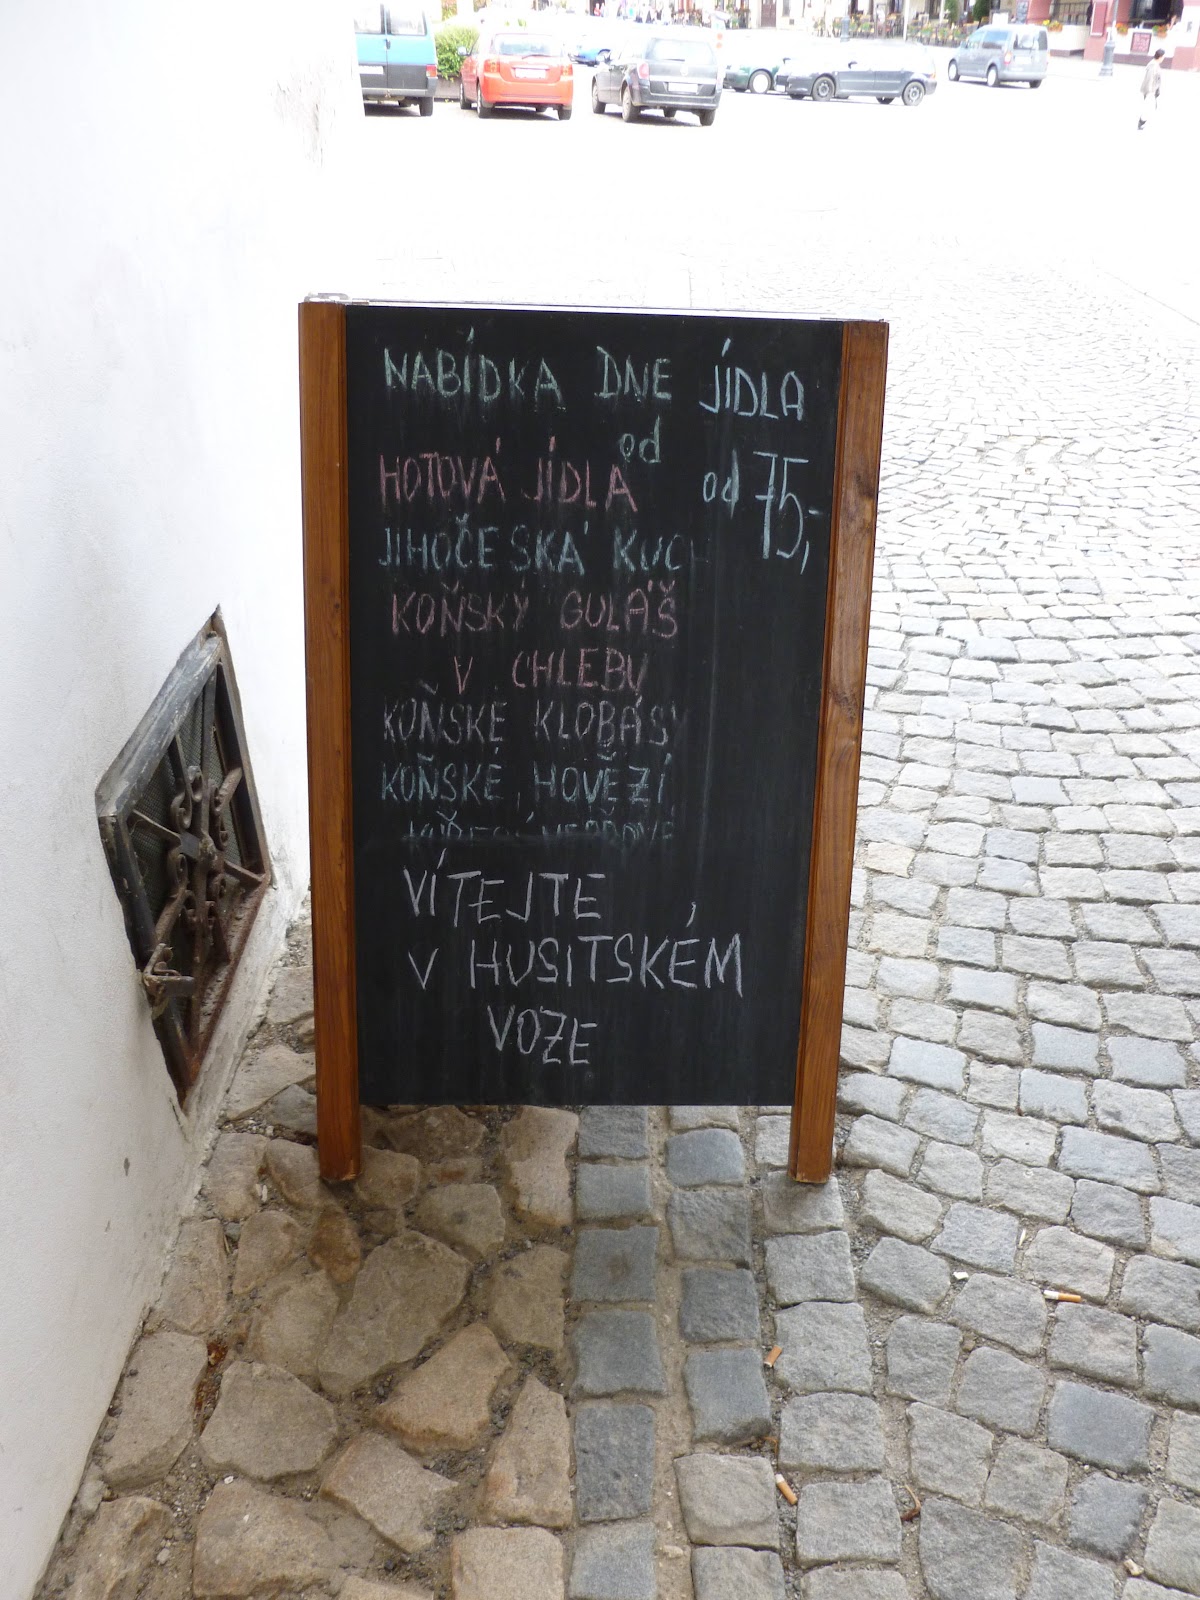 NABÍDKA DNE JÍDLA
od
HOTOVÁ JÍDLA od 75,-
JIHOČESKÁ KUCH
KOŇSKÝ GULÁŠ
V CHLEBU
KOŇSKÉ KLOBÁSY
KOŇSKÉ, HOVĚZÍ,
VÍTEJTE
V HUSITSKÉM
VOZE